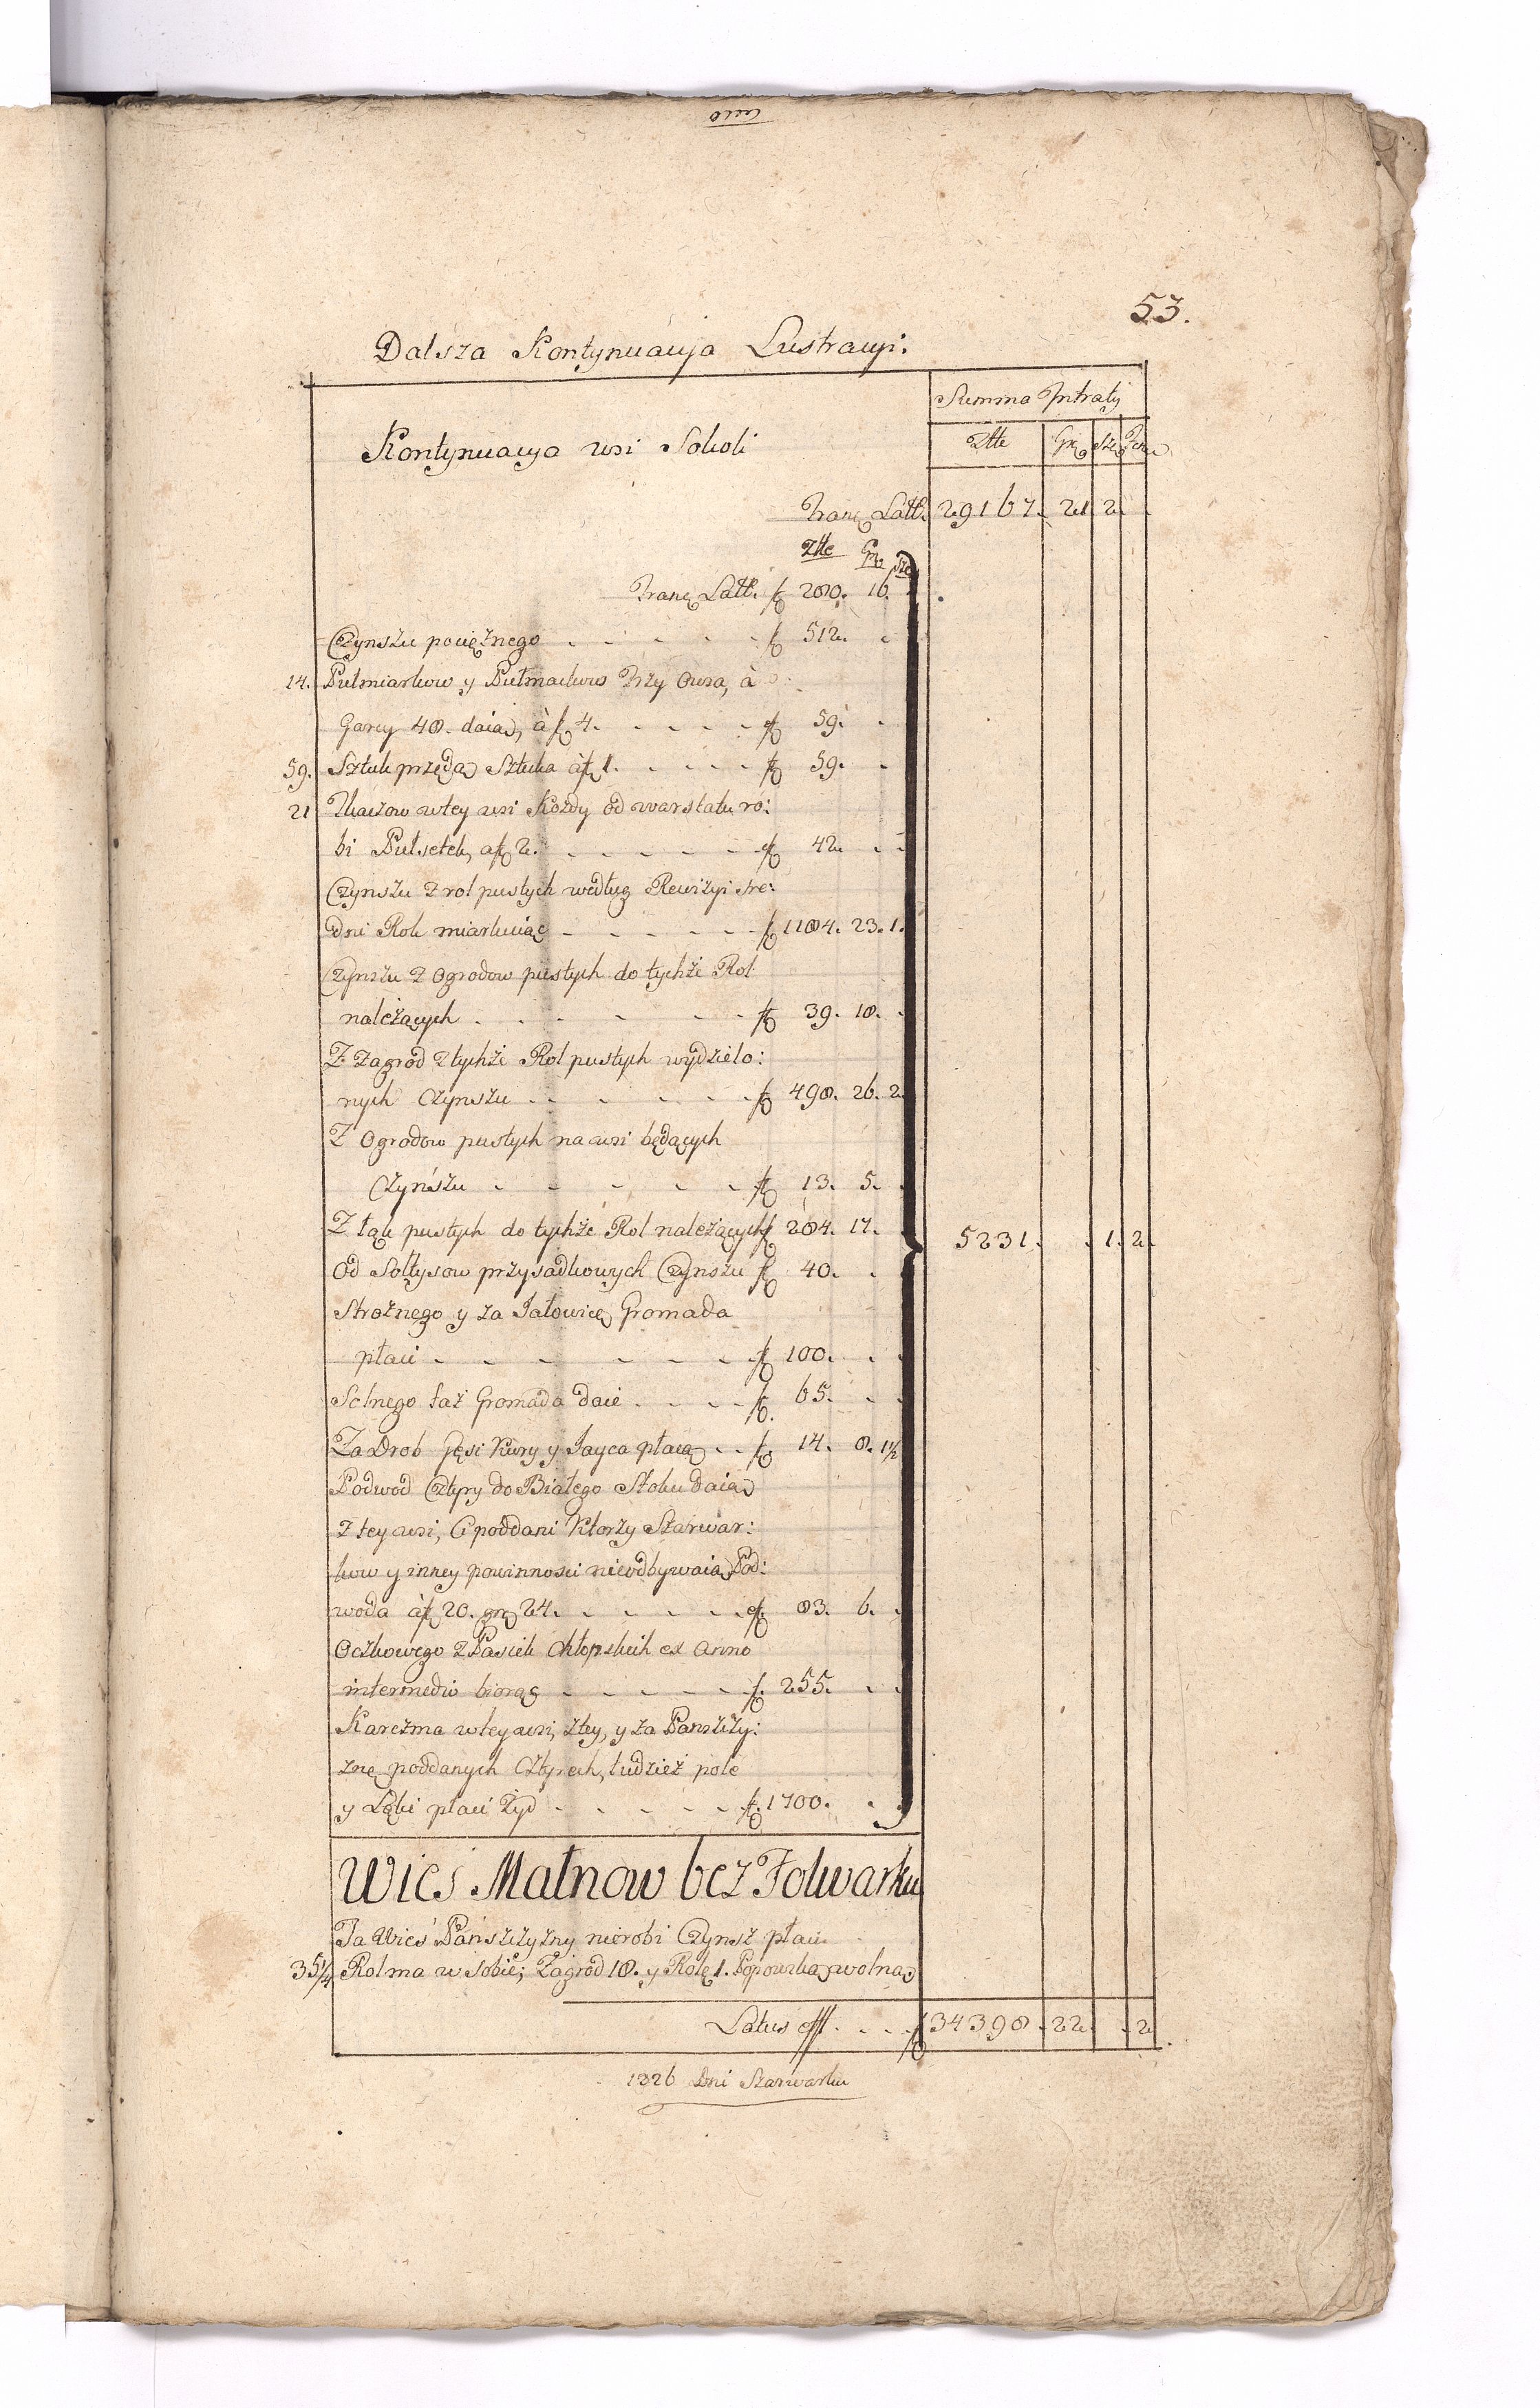 53.
Dalsza Kontynuacyja Lustracyi.
Summa Intraty
Kontynuacyja wsi Sokoli
Złłe Gr Sze
Tranę Latt. 29167. 21 2
Złłe Gr Sze
Tranę Latt. f 280. 16.
Czynszu pociężnego - - - f 512.
14. Pułmiarkow y Pułmackow Trzy Owsa, à
Garcy 48. daią, à f 4. - - - f 59.
59. Sztuk przędą Sztuka à f 1. - - - f 59.
21 Tkaczow w tey wsi Kożdy od warstatu ro:
bi Pułsetek, a f 2. - - - f 42.
Czynszu z rol pustych według Rewizyi sre:
dni Rok miarkuiąc - - - f 1184. 23. 1.
Czynszu z Ogrodow pustych do tychże Rol
należących - - - f 39. 18.
Z Zagrod z tychże Rol pustych wydzielo:
nych Czynszu - - - f 498. 26. 2
Z Ogrodow pustych na wsi będących
Czynszu - - - f 13. 5.
Z łąk pustych do tychże Rol należących f 284. 17. 5231. 1. 2
Od Sołtysow przysadkowych Czynszu f 40.
Strożnego y za Jałowicę Gromada
płaci - - - f 100.
Solnego taż Gromada daie - - - f 65.
Za Drob Gęsi Kury y Jayca płacą - - f 14. 8. 1½
Podwod Cztyry do Białego Stoku daią
z tey wsi, Ci poddani Ktorzy Szarwar:
kow y inney powinnosci nieodbywaią, Pod:
woda à f 20. gr 24. - - - f 83. 6.
Oczkowego z Pasiek Chłopskich ex Anno
intermedio biorąc - - - f 255.
Karczma w tey wsi, z tey, y za Panszczy:
znę poddanych Cztyrech, tudzież pole
y Łąki płaci Żyd - - - f. 1700.
Wies Małnow bez Folwarku
Ta Wieś Pańszczyzny nierobi Czynsz płaci
35¼ Rol ma w sobie; Zagrod 18. y Rolę 1. Popowską wolną
Latus eff. - - - f 34398. 22. 2
1326 Dni Szarwarku